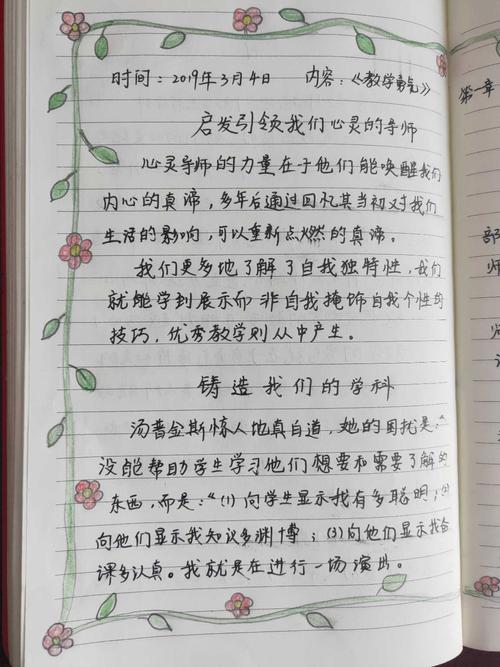 时间：2019年3月4日 内容：《教学勇气》
启发引领我们心灵的导师
心灵导师的力量在于他们能唤醒我们
内心的真谛，多年后通过回忆其当初对我们
生活的影响，可以重新点燃的真谛。
我们更多地了解了自我独特性，我们
就能学到展示而非自我掩饰自我个性的
技巧，优秀教学则从中产生。
铸造我们的学科
汤普金斯惊人地真白道，她的困扰是："
没能帮助学生学习他们想要和需要了解的
东西，而是："(1)向学生显示我有多聪明；(2)
向他们显示我知识多渊博；(3)向他们显示我备
课多认真。我就是在进行一场演出。
第一章
部
师